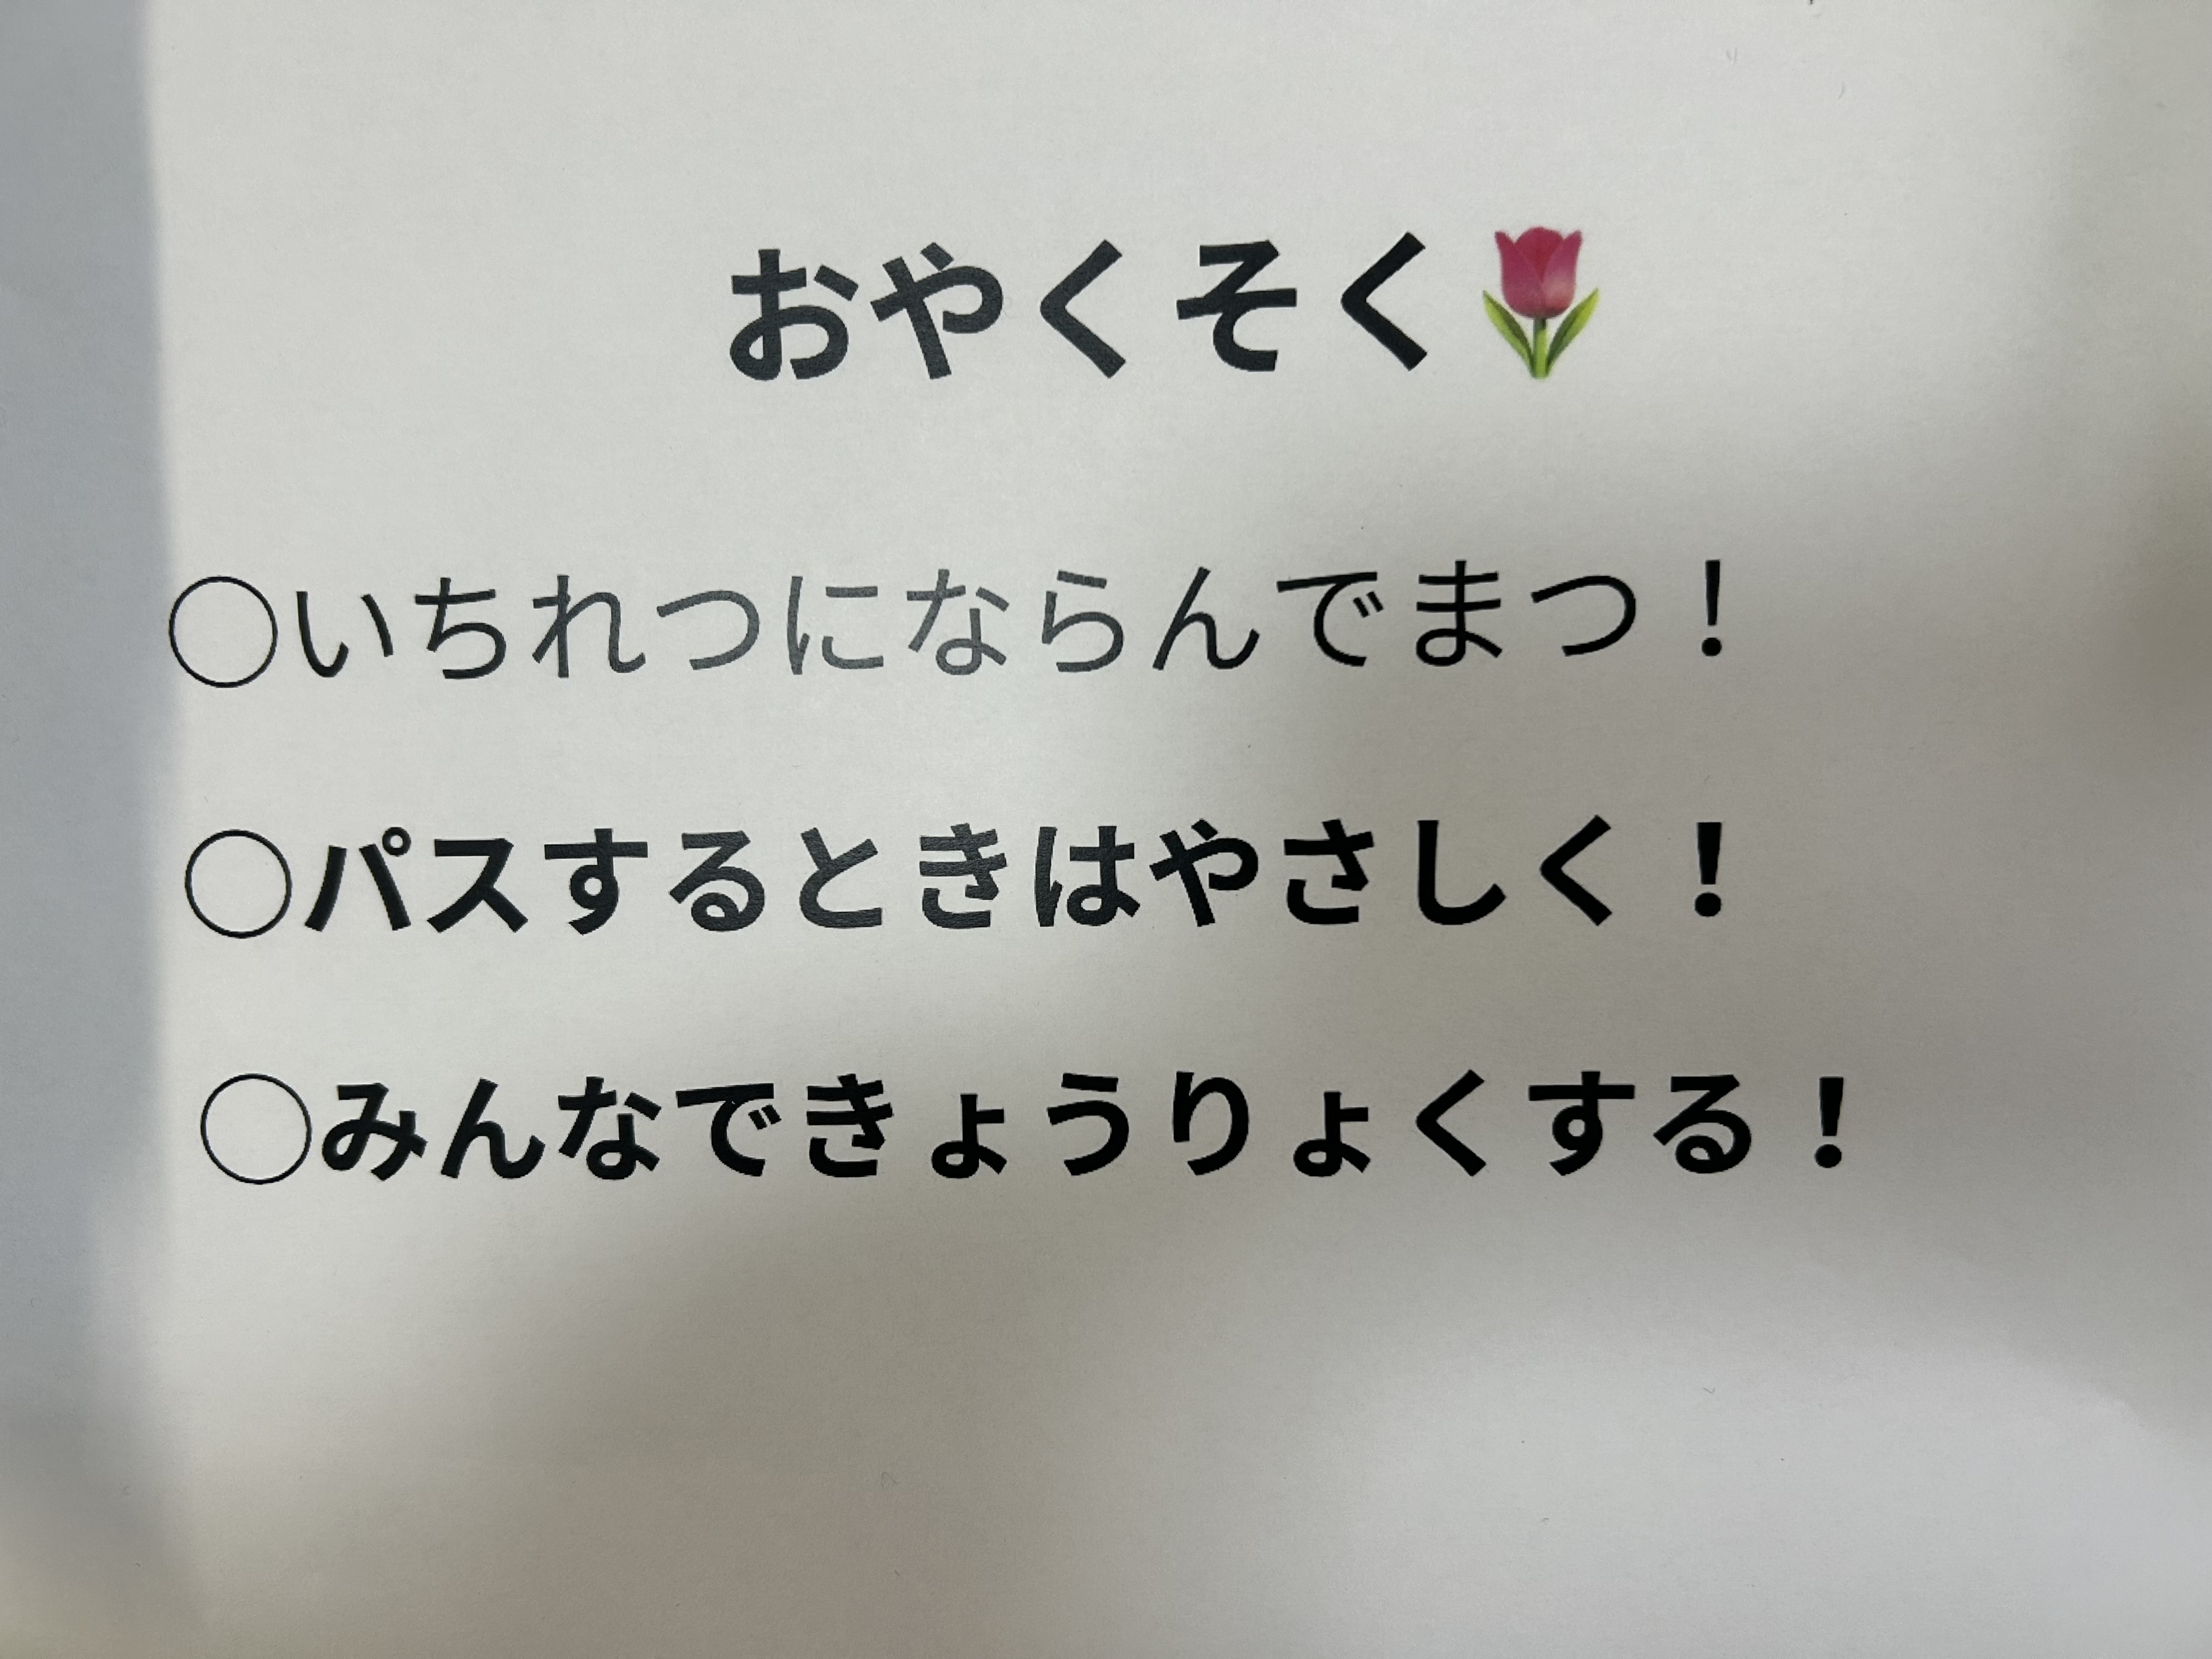 おやくそく🌷
○いちれつにならんでまつ！
○パスするときはやさしく！
○みんなできょうりょくする！